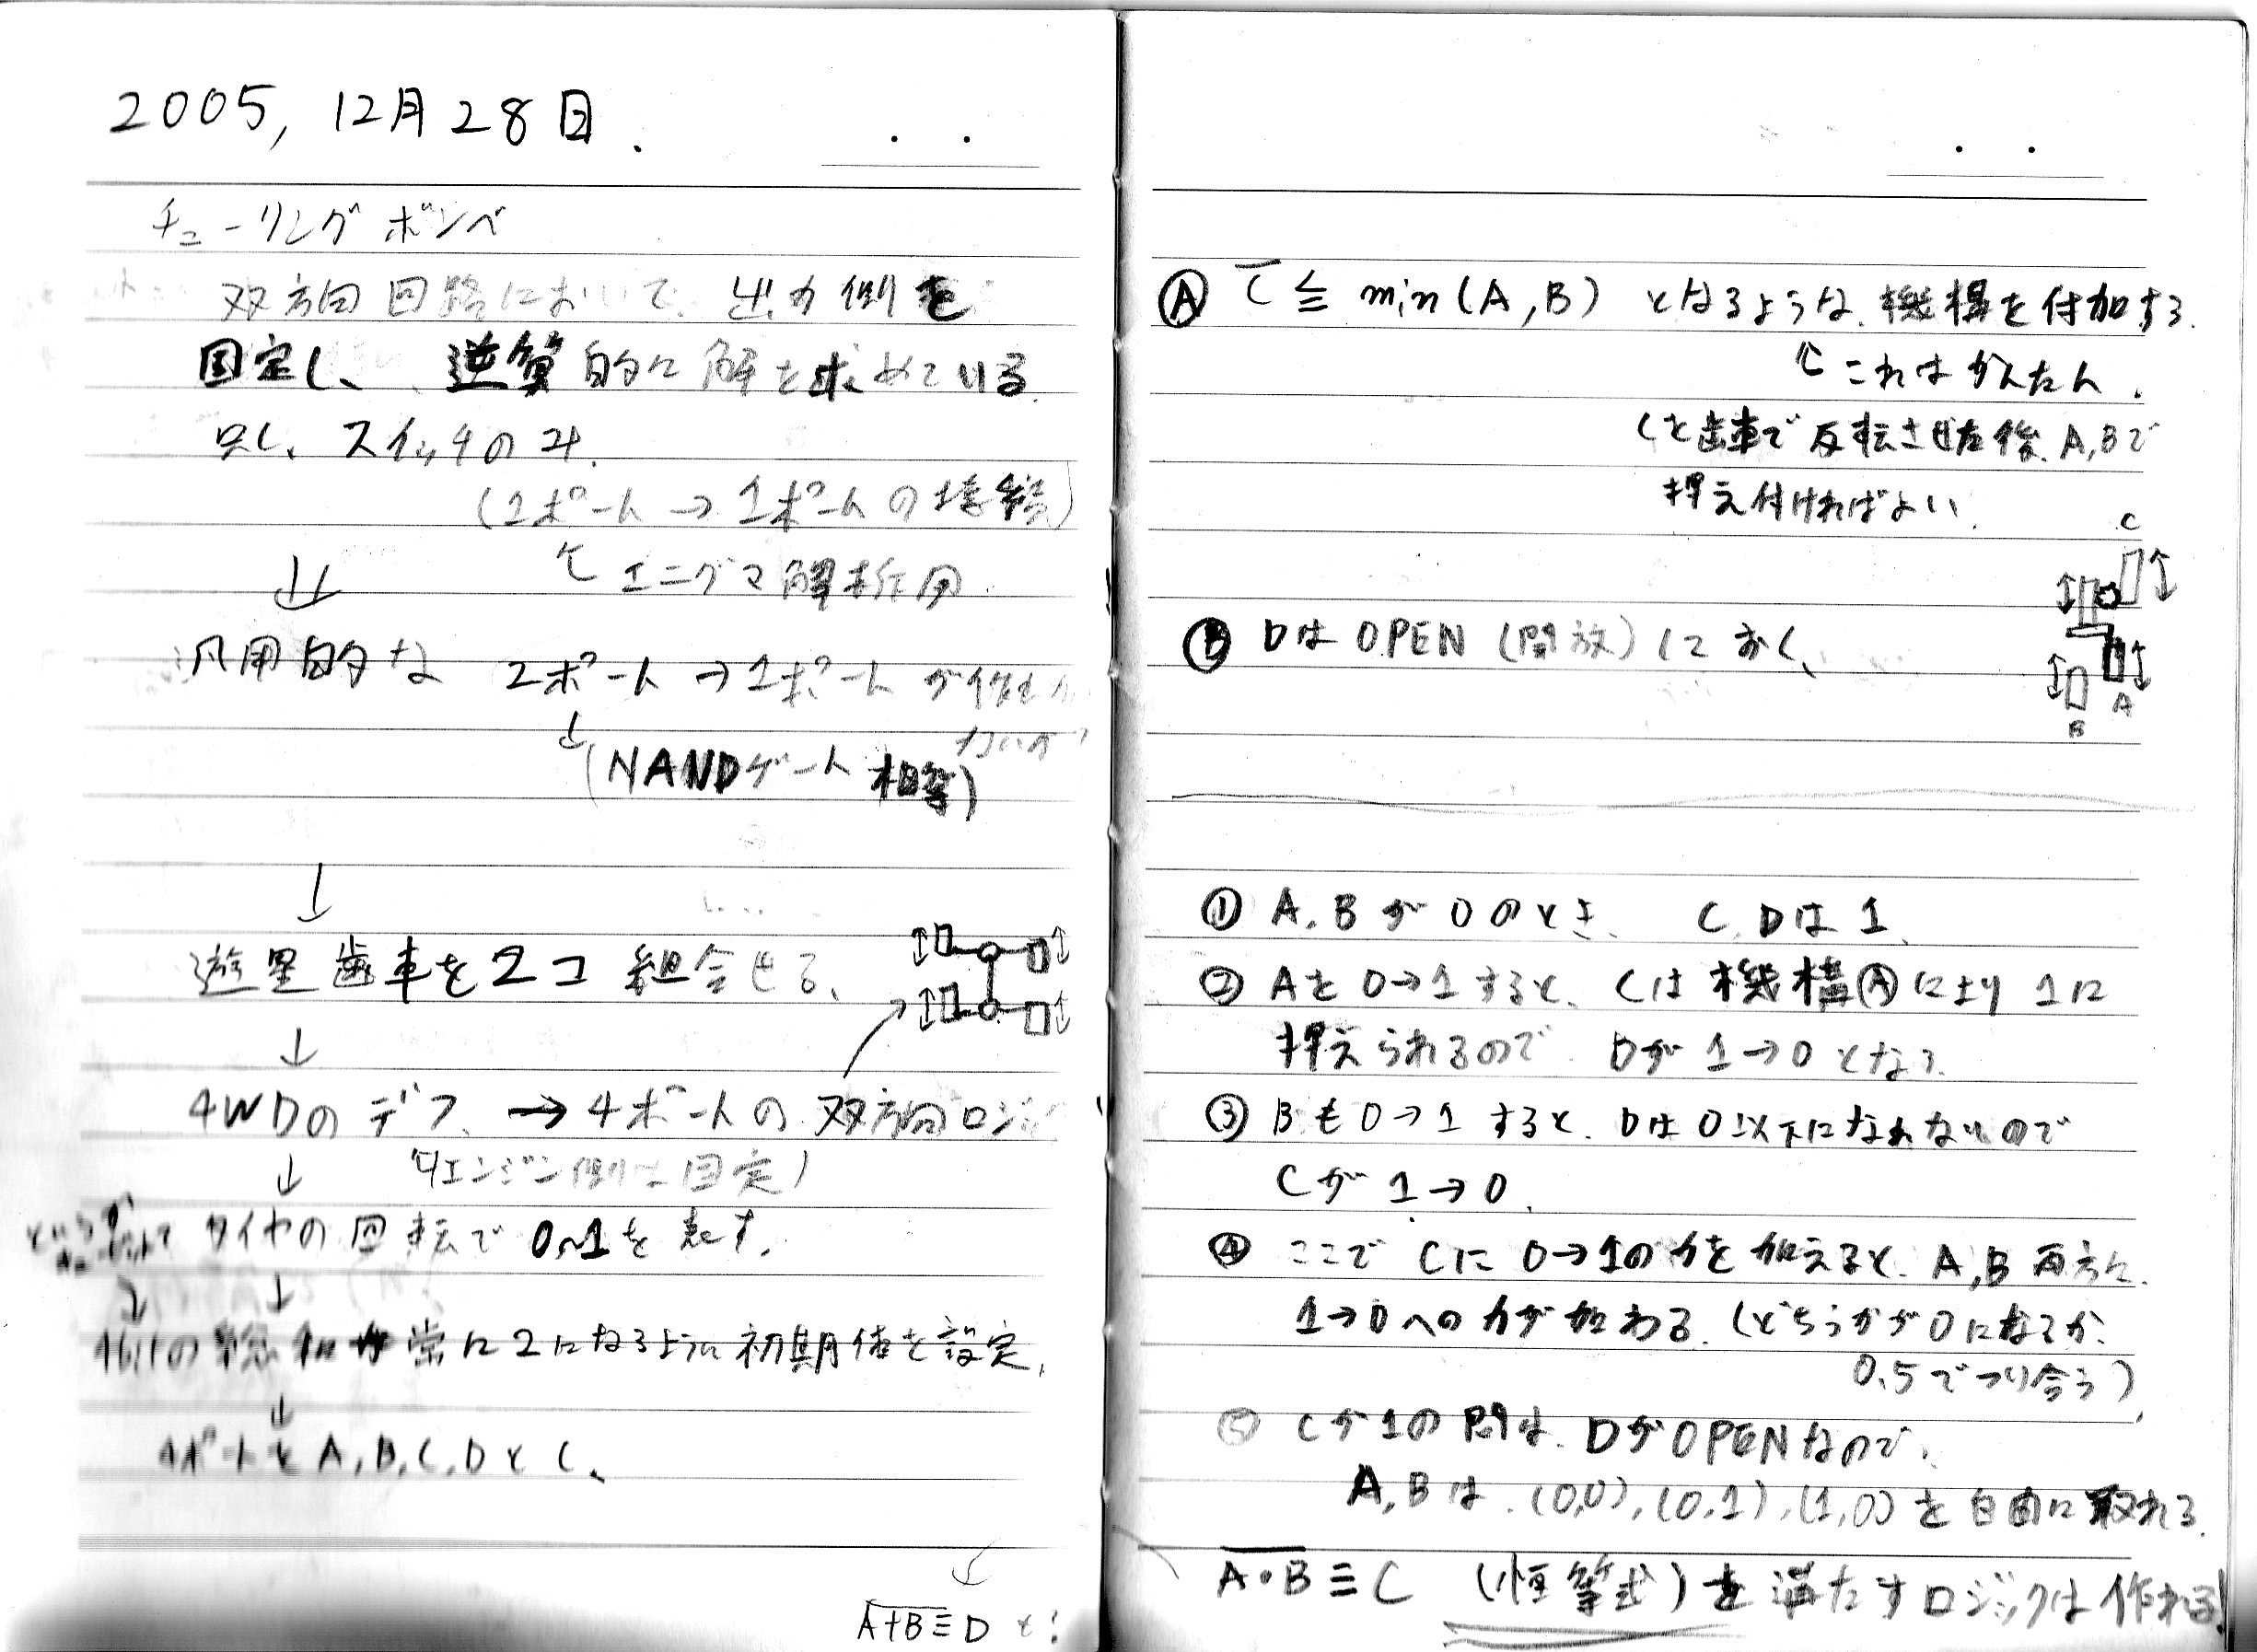 2005, 12月28日.
チューリングボンベ
双方向回路において、出力側を
固定し、逆算的に解を求めている.
但し、スイッチのみ.
(1ポート → 1ポートの接続)
↑ エニグマ解析用.
汎用的な 2ポート → 1ポート が
(NANDゲート相等)
遊星歯車を2コ 組合せる、
4WDのデフ. → 4ポートの双方向ロジ
(エンジン側は固定)
タイヤの回転で 0~1を表す.
の総和が常に2になるように初期値を設定.
4ポートをA,B,C,Dとし、
A+B≡D と!
Ⓐ C̅ ≦ min(A,B) となるような、機構を付加する.
↑ これはかんたん.
Cを歯車で反転させた後、A,Bで
押え付ければよい.
C
A
B
Ⓑ DはOPEN(開放)におく、
① A,Bが0のとき、 C,Dは1、
② Aを0→1すると、Cは機構Ⓐにより1に
押えられるので Dが1→0となる.
③ Bも0→1すると、Dは0以下になれないので
Cが1→0.
④ ここでCに0→1の力を加えると、A,B両方に.
1→0への力が加わる.(どちらかが0になるか、
0.5でつり合う)
⑤ Cが1の間は、DがOPENなので、
A,Bは.(0,0),(0,1),(1,0)を自由に取れる.
A・B≡C (恒等式)を満たすロジックは作れる!